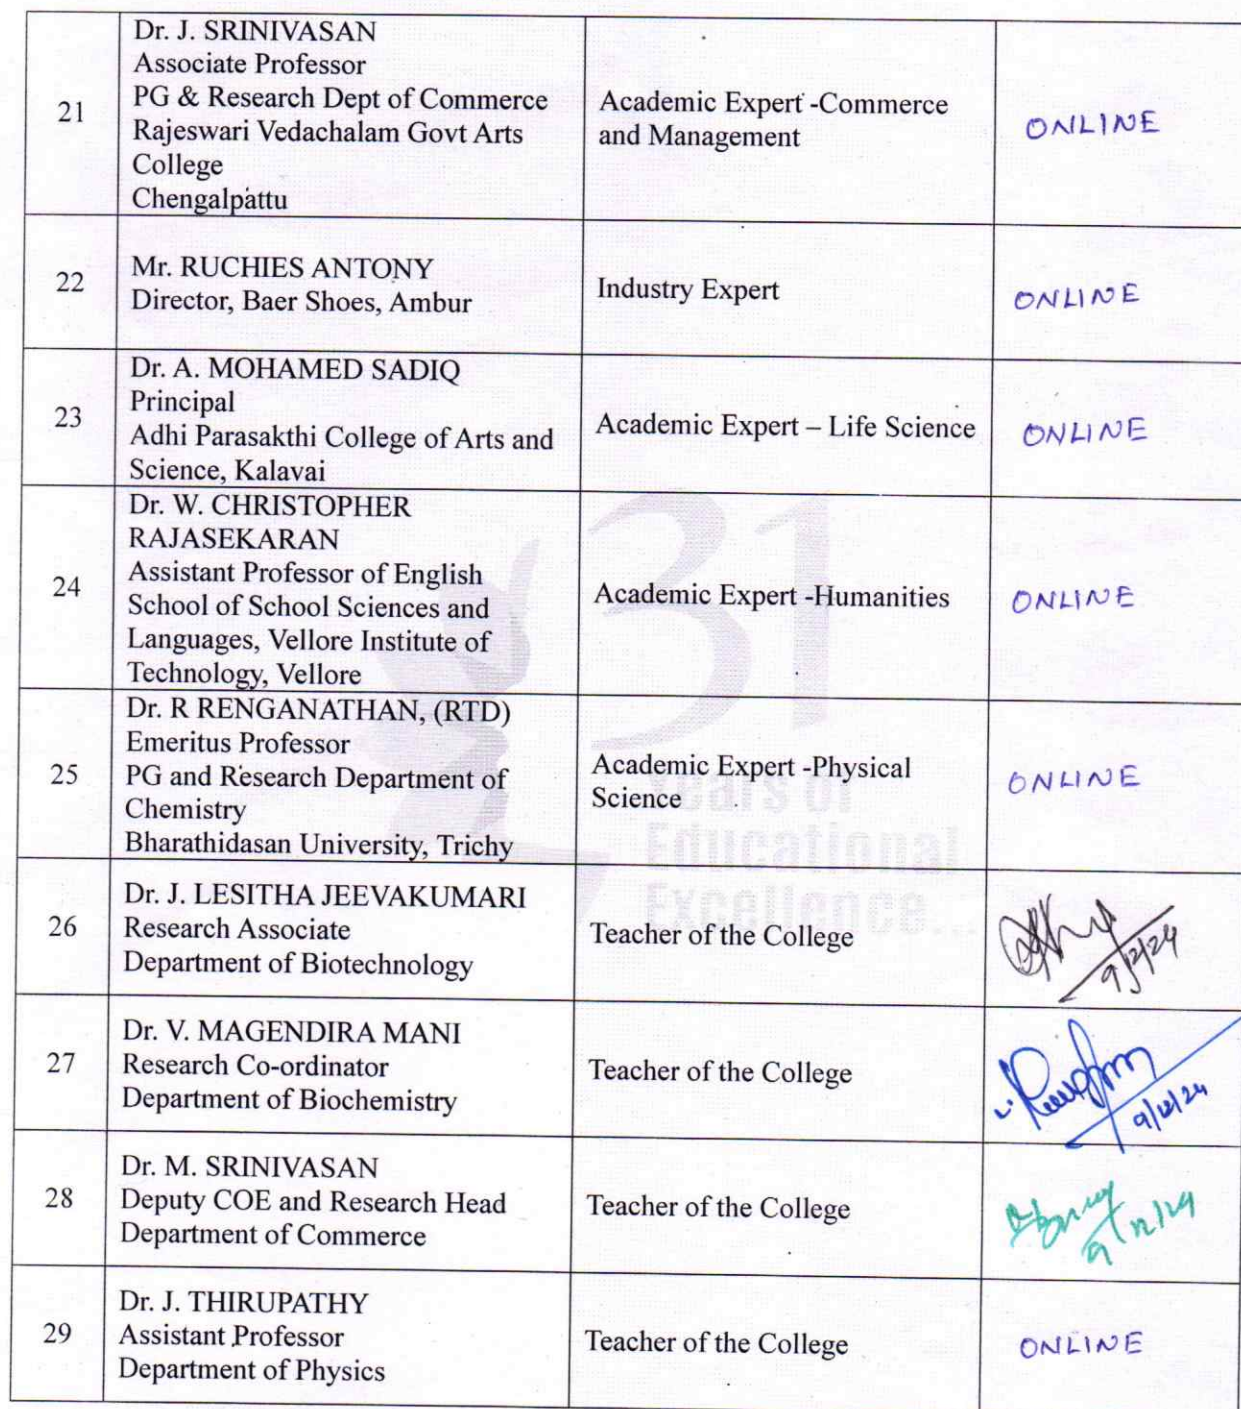 21
Dr. J. SRINIVASAN
Associate Professor
PG & Research Dept of Commerce
Rajeswari Vedachalam Govt Arts
College
Chengalpattu
Academic Expert -Commerce
and Management
ONLINE
22
Mr. RUCHIES ANTONY
Director, Baer Shoes, Ambur
Industry Expert
ONLINE
23
Dr. A. MOHAMED SADIQ
Principal
Adhi Parasakthi College of Arts and
Science, Kalavai
Academic Expert – Life Science
ONLINE
24
Dr. W. CHRISTOPHER
RAJASEKARAN
Assistant Professor of English
School of School Sciences and
Languages, Vellore Institute of
Technology, Vellore
Academic Expert -Humanities
ONLINE
25
Dr. R RENGANATHAN, (RTD)
Emeritus Professor
PG and Research Department of
Chemistry
Bharathidasan University, Trichy
Academic Expert -Physical
Science
ONLINE
31
Years of
Educational
Excellence...
26
Dr. J. LESITHA JEEVAKUMARI
Research Associate
Department of Biotechnology
Teacher of the College
9/12/24
27
Dr. V. MAGENDIRA MANI
Research Co-ordinator
Department of Biochemistry
Teacher of the College
9/12/24
28
Dr. M. SRINIVASAN
Deputy COE and Research Head
Department of Commerce
Teacher of the College
9/12/24
29
Dr. J. THIRUPATHY
Assistant Professor
Department of Physics
Teacher of the College
ONLINE